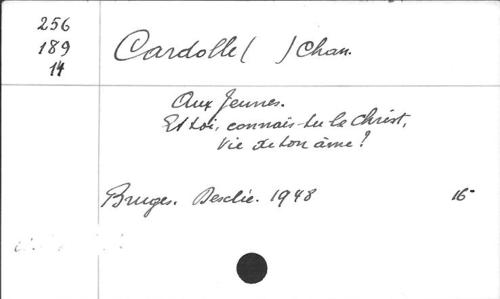 256
189
14
Cardolle ( ) Chan.
Aux Jeunes.
Et toi, connais-tu le Christ,
Vie de ton âme ?
Bruges. Desclée. 1948 16°